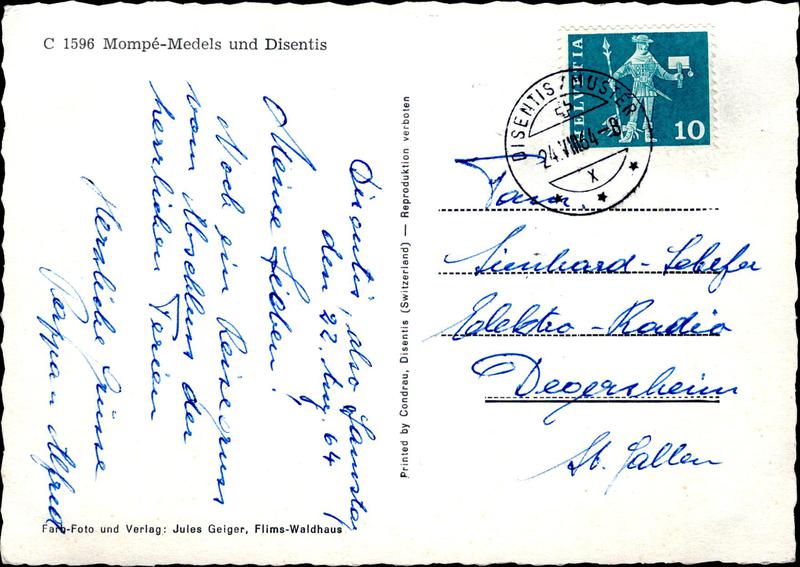 C 1596 Mompé-Medels und Disentis
Disentis, also Samstag
den 22. Aug. 64
Meine Lieben!
Noch ein Reisegruss
vom Abschluss der
herrlichen Ferien
Herzliche Grüsse
Alfred
Farb-Foto und Verlag: Jules Geiger, Flims-Waldhaus
Printed by Condrau, Disentis (Switzerland) — Reproduktion verboten
HELVETIA
10
DISENTIS/MUSTER
24.VIII.64-8
X
Fam.
Lienhard-Schefer
Elektro-Radio
Degersheim
St. Gallen